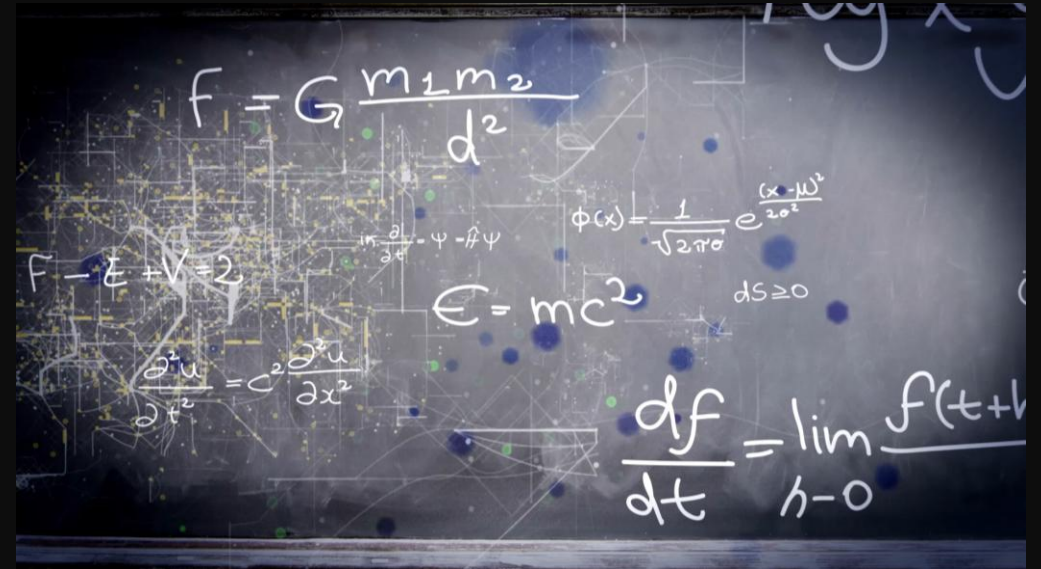 F = G m1m2 / d²
ϕ(x) = 1 / √2πσ e (x-μ)² / 2σ²
∂ / ∂t - Ψ = Ĥ Ψ
F - E + V = 2
E = mc²
dS ≥ 0
∂²u / ∂t² = c² ∂²u / ∂x²
df / dt = lim h-0 f(t+h